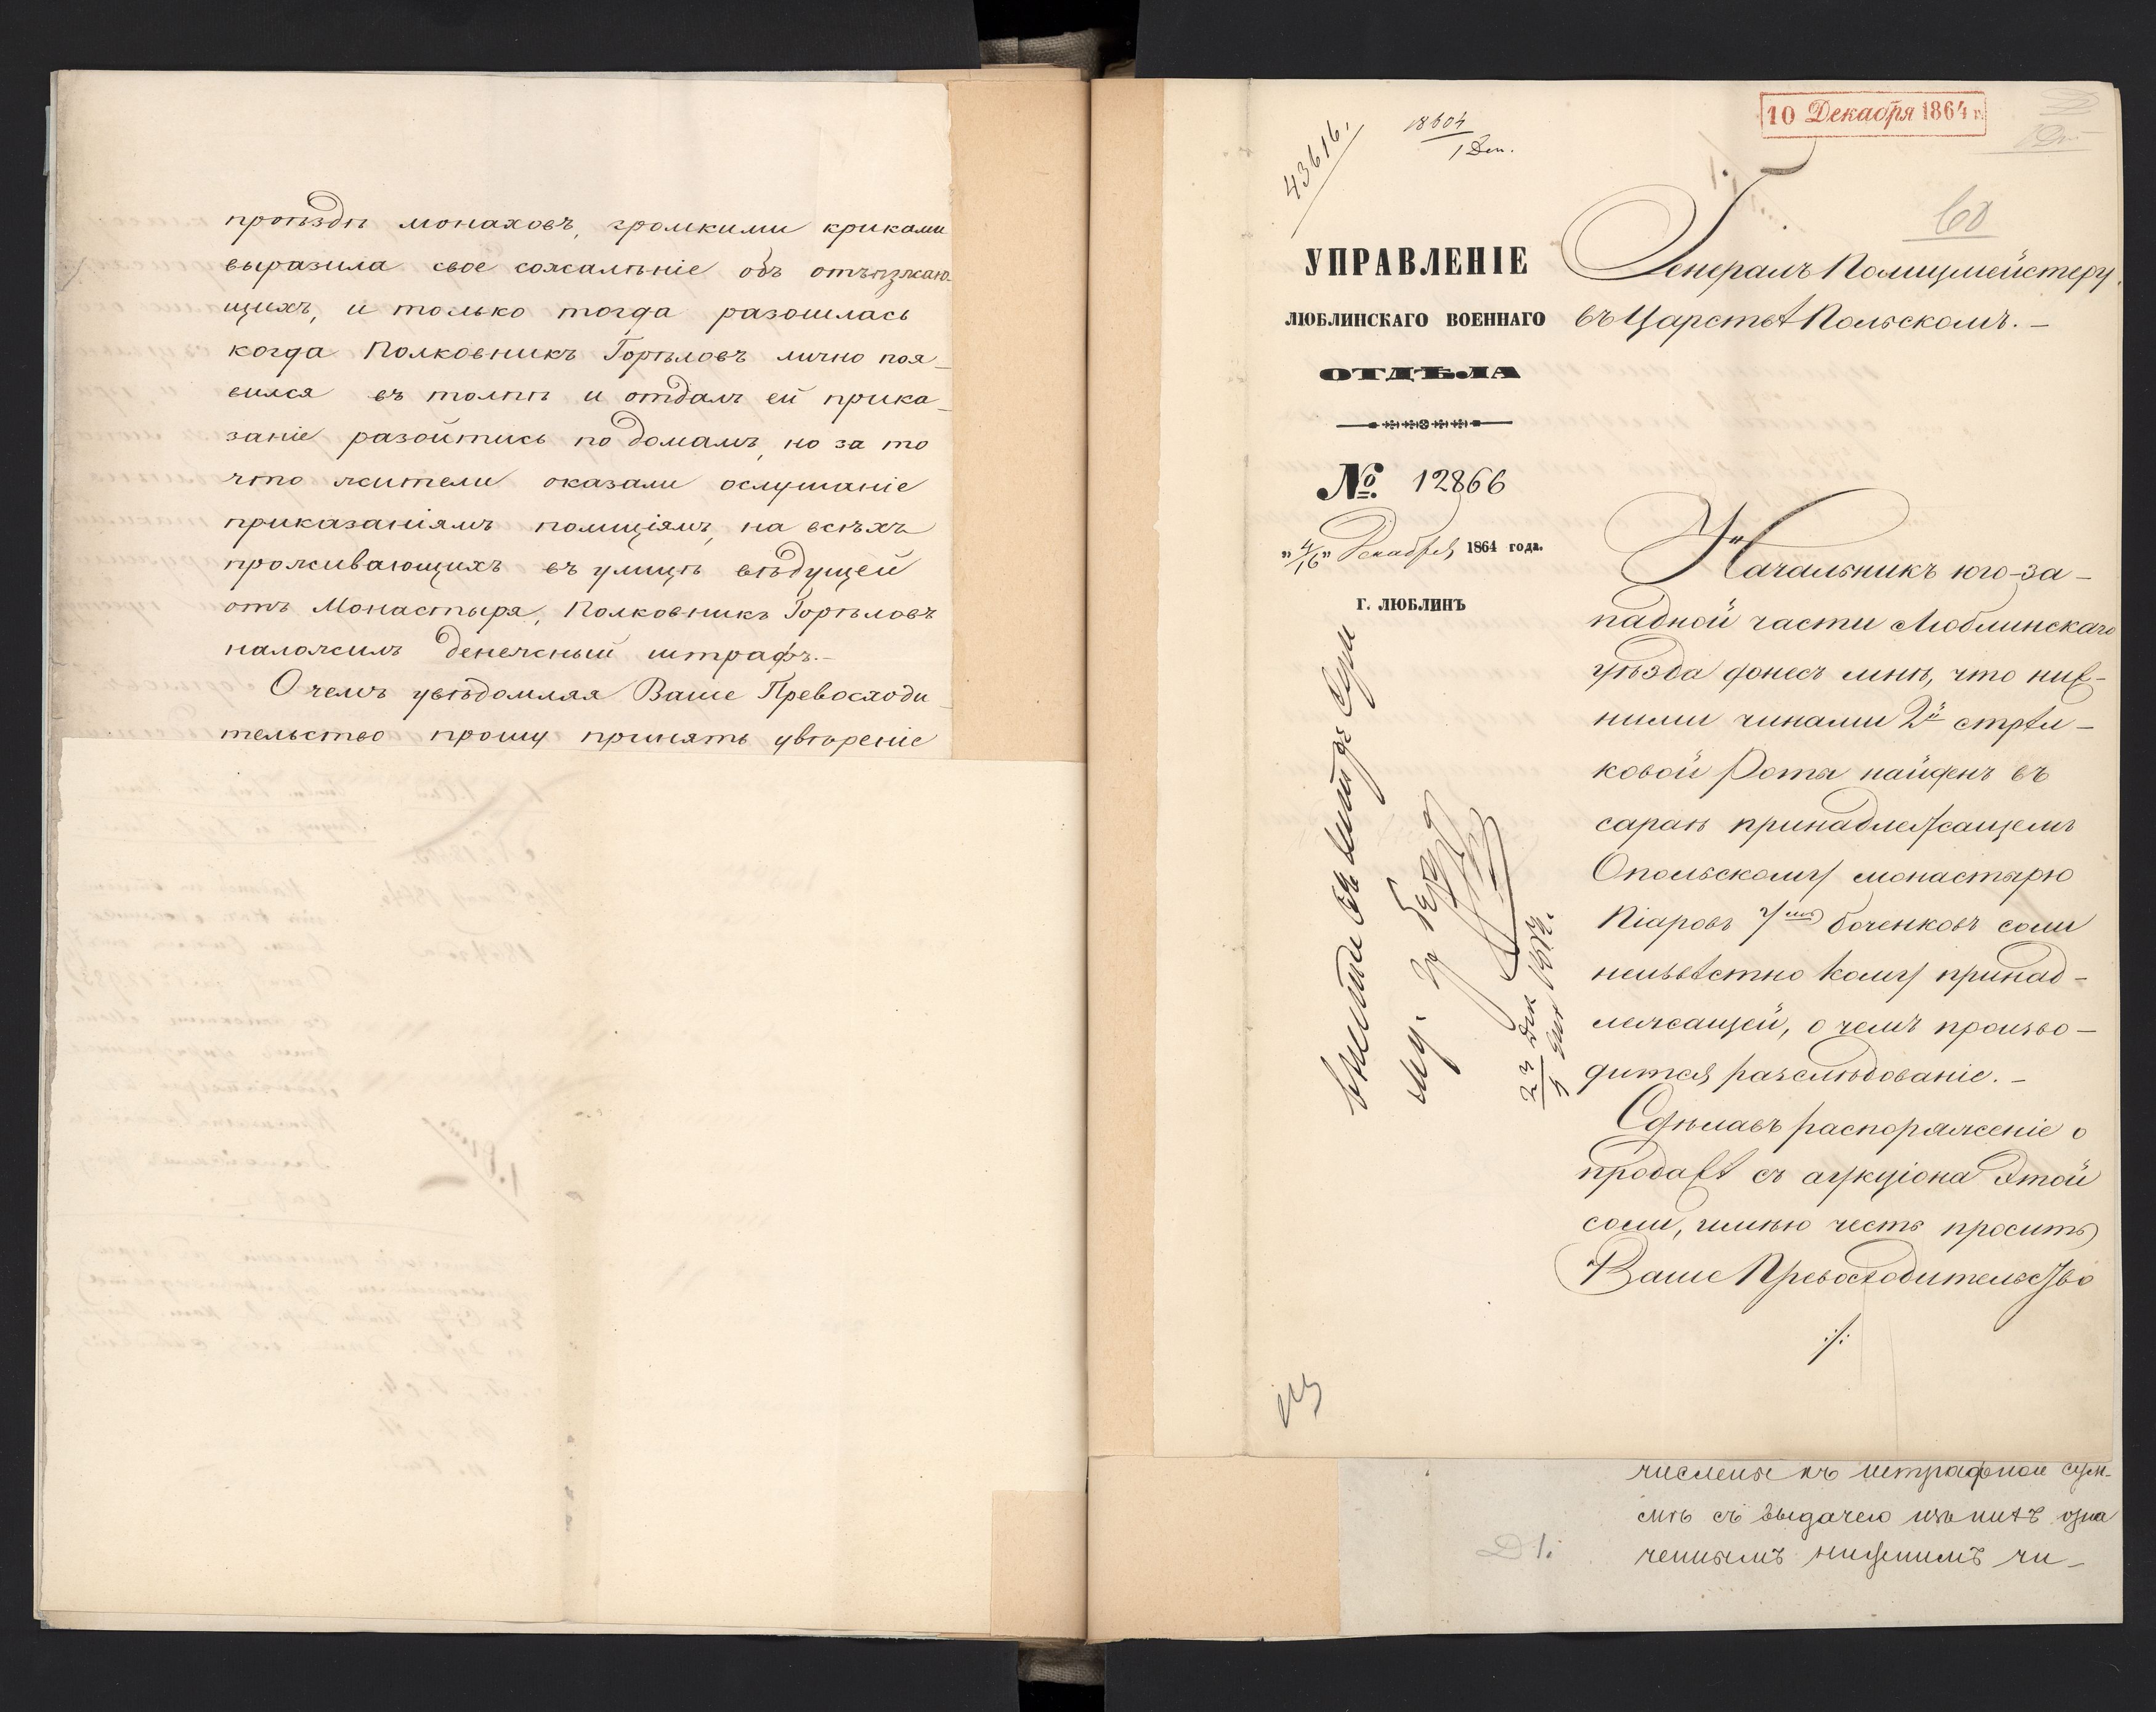 проѣздѣ монаховъ, громкими криками
выразила свое сожалѣніе объ отъѣзжаю-
щихъ, и только тогда разошлась
когда Полковникъ Горѣловъ лично поя-
вился въ толпѣ и отдалъ ей прика-
заніе разойтись по домамъ, но за то
что жители оказали ослушаніе
приказаніямъ полиціямъ, на всѣхъ
проживающихъ въ улицѣ вѣдущей
отъ Монастыря, Полковникъ Горѣловъ
наложилъ денежный штрафъ.-
О чемъ увѣдомляя Ваше Превосходи-
тельство прошу принять увѣреніе
10 Декабря 1864 г.
43616.
18604
1 Деп.
60
УПРАВЛЕНІЕ
ЛЮБЛИНСКАГО ВОЕННАГО
ОТДѢЛА
№ 12866
„4/16" Декабря 1864 года.
г. ЛЮБЛИНЪ
Генералъ Полицмейстеру
въ Царствѣ Польскомъ.-
Начальникъ юго-за-
падной части Люблинскаго
уѣзда донесъ мнѣ, что ниж-
ними чинами 2й стрѣл-
ковой Роты найденъ въ
сараѣ принадлежащемъ
Опольскому монастырю
Піаровъ 7мь боченковъ соли
неизвѣстно кому принад-
лежащей, о чемъ произво-
дится разслѣдованіе.-
Сдѣлавъ распоряженіе о
продажѣ съ аукціона этой
соли, имѣю честь просить
Ваше Превосходительство
./.
численію къ штрафной сум-
мѣ съ выдачею изъ нихъ озна
ченнымъ нижнимъ чи-